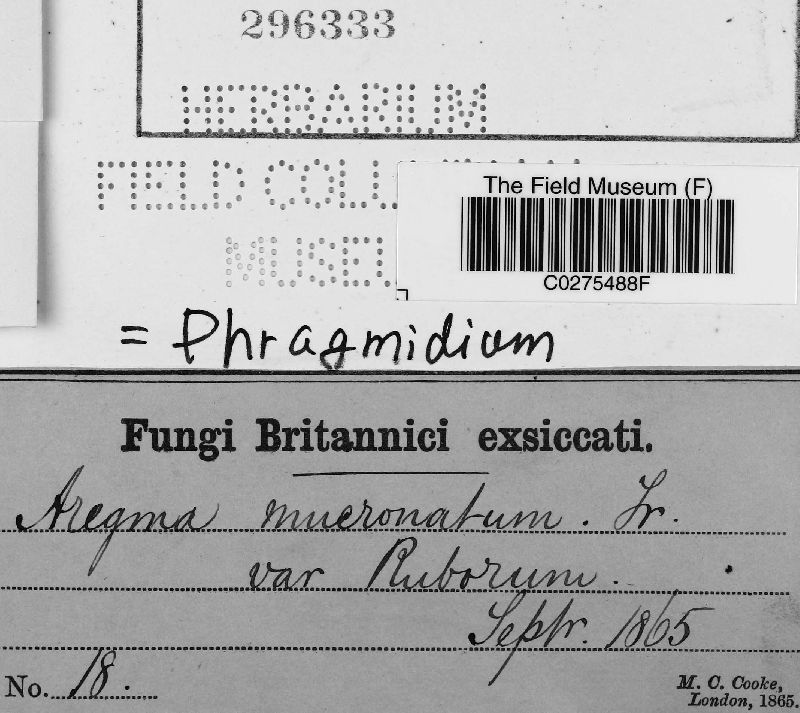 296333
HERBARIUM
FIELD COLU
MUSEU
The Field Museum (F)
C0275488F
= Phragmidium
Fungi Britannici exsiccati.
Aregma mucronatum. Fr.
var Ruborum.
Septr. 1865
No. 18.
M. C. Cooke,
London, 1865.